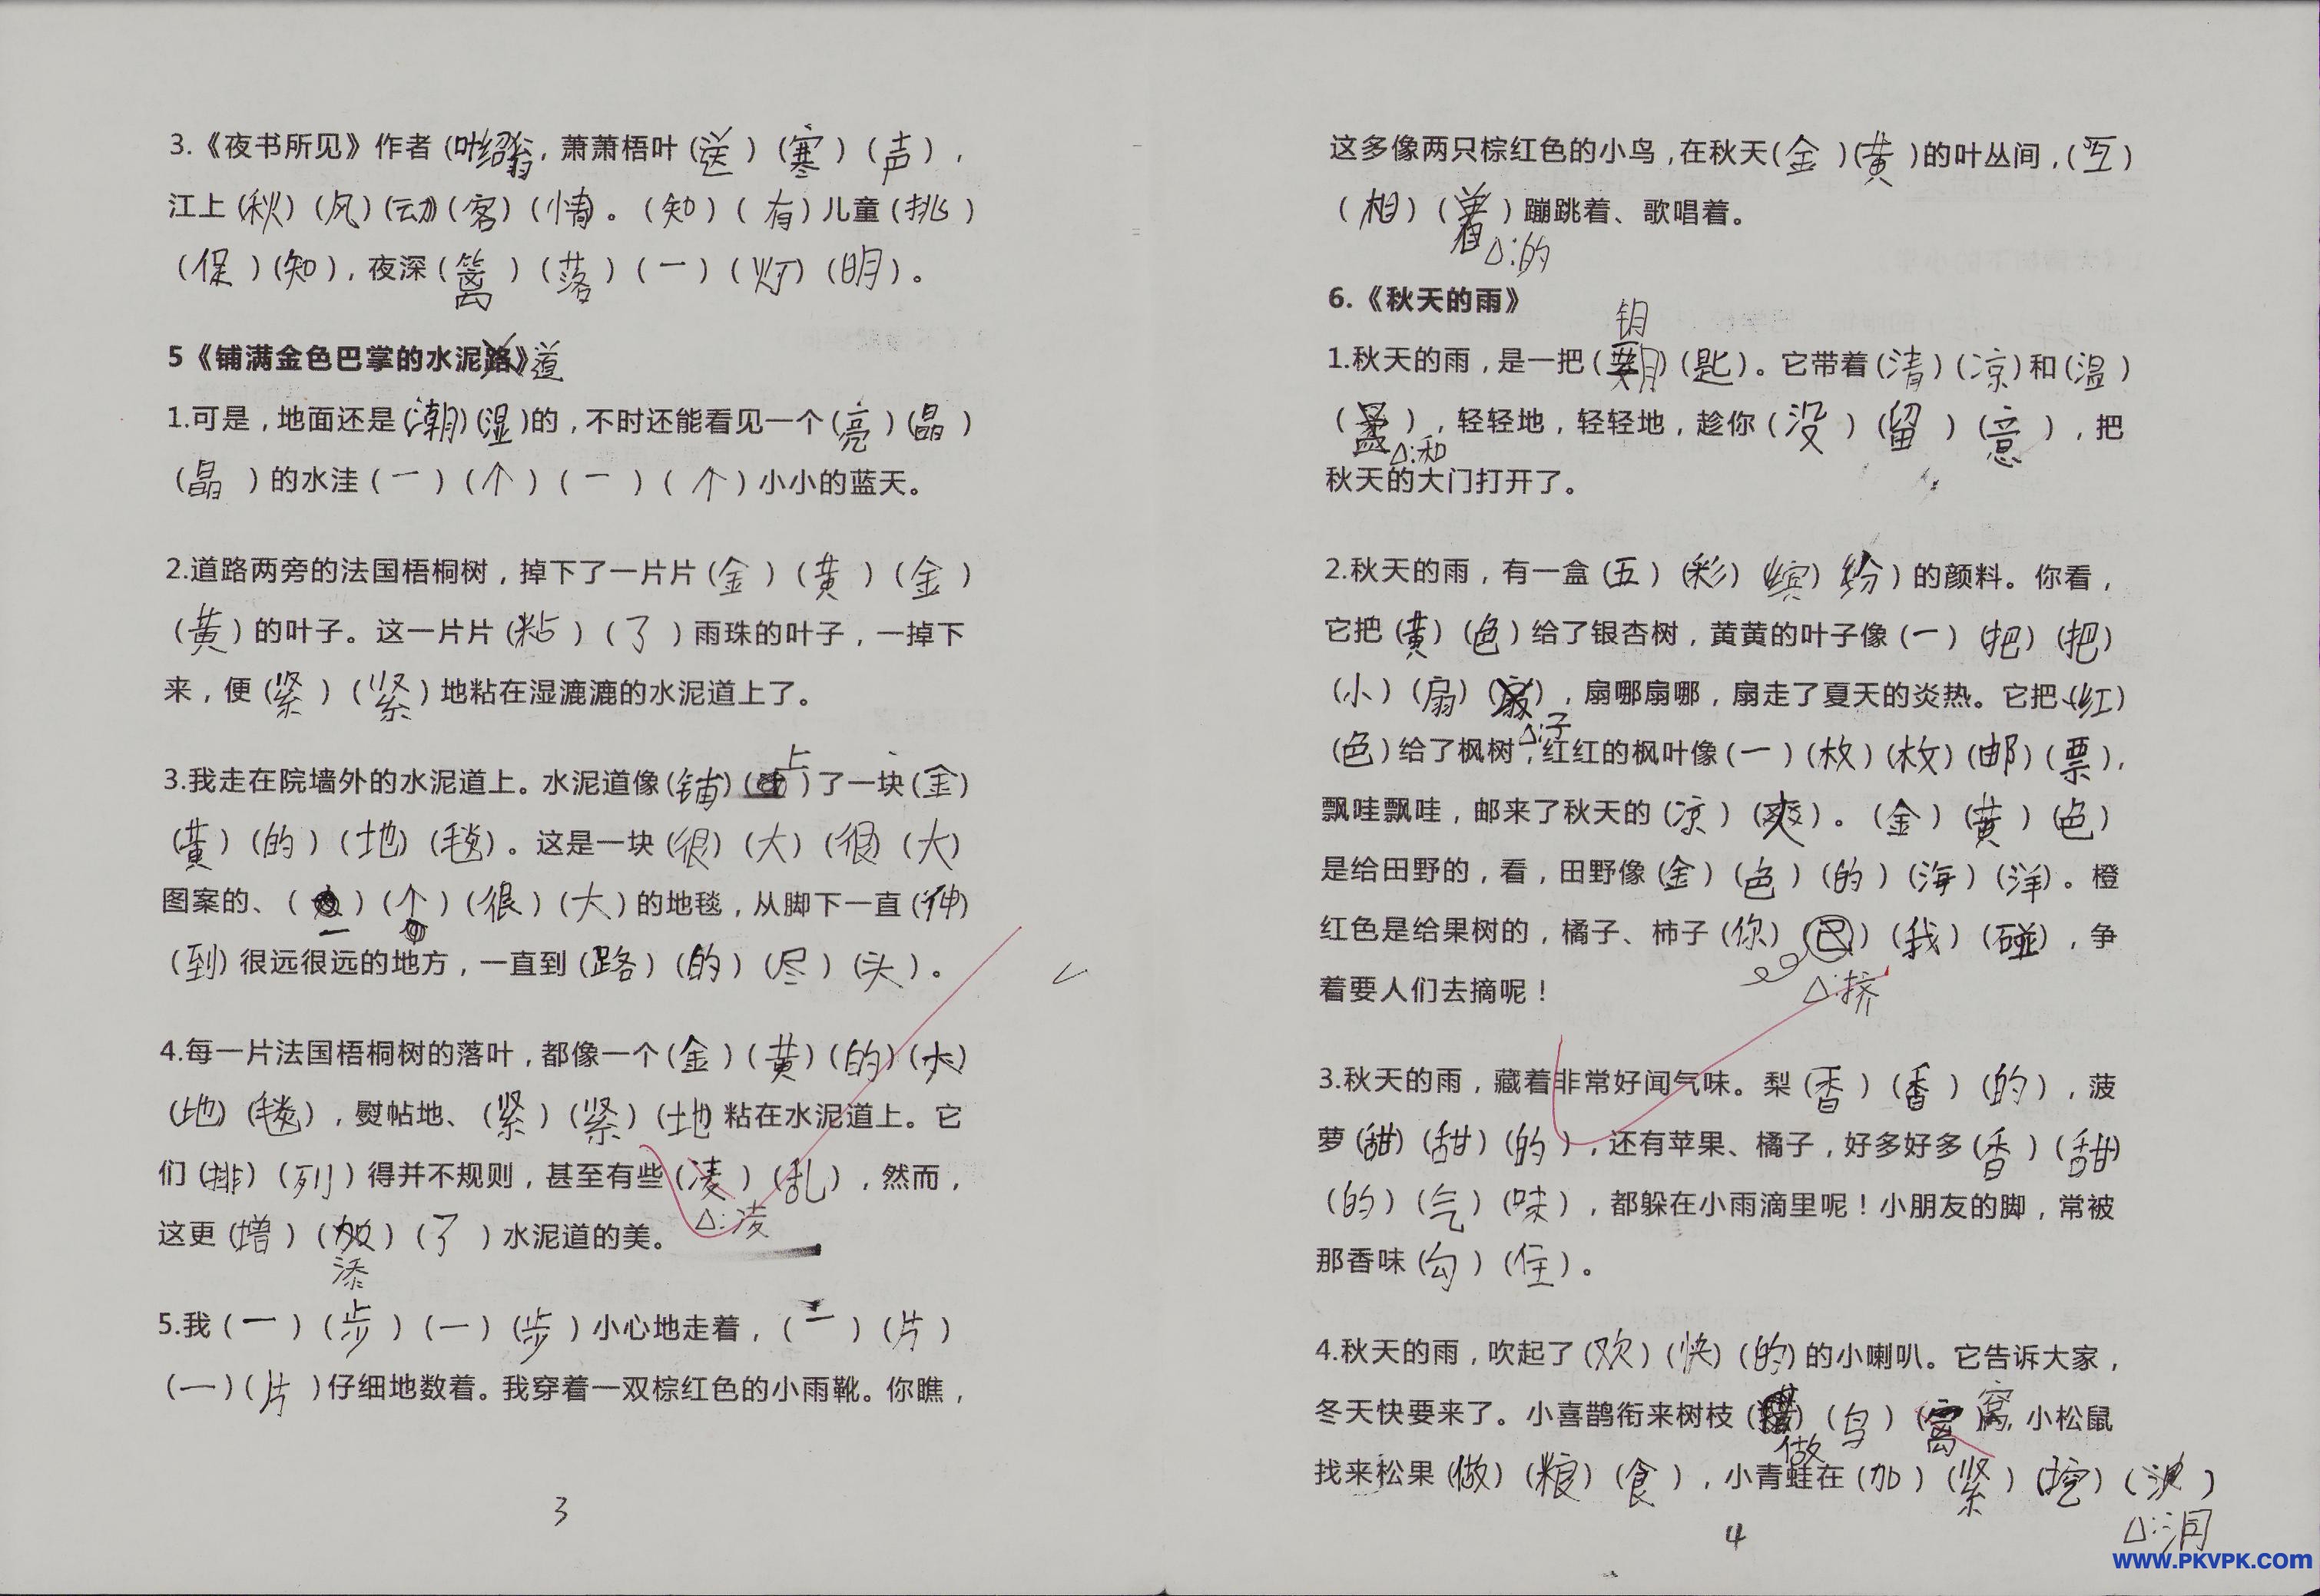 3.《夜书所见》作者(叶绍翁,萧萧梧叶(送)(寒)(声),
江上(秋)(风)(动)(客)(情)。(知)(有)儿童(挑)
(促)(知),夜深(篱)(落)(一)(灯)(明)。
5《铺满金色巴掌的水泥路》道
1.可是,地面还是(潮)(湿)的,不时还能看见一个(亮)(晶)
(晶)的水洼(一)(个)(一)(个)小小的蓝天。
2.道路两旁的法国梧桐树,掉下了一片片(金)(黄)(金)
(黄)的叶子。这一片片(粘)(了)雨珠的叶子,一掉下
来,便(紧)(紧)地粘在湿漉漉的水泥道上了。
上
3.我走在院墙外的水泥道上。水泥道像(铺)()了一块(金)
(黄)(的)(地)(毯)。这是一块(很)(大)(很)(大)
图案的、()(个)(很)(大)的地毯,从脚下一直(伸)
一
(到)很远很远的地方,一直到(路)(的)(尽)(头)。
4.每一片法国梧桐树的落叶,都像一个(金)(黄)(的)(大)
(地)(毯),熨帖地、(紧)(紧)(地)粘在水泥道上。它
们(排)(列)得并不规则,甚至有些(凌)(乱),然而,
△:凌
这更(增)(加)(了)水泥道的美。
添
5.我(一)(步)(一)(步)小心地走着,(一)(片)
(一)(片)仔细地数着。我穿着一双棕红色的小雨靴。你瞧,
3
这多像两只棕红色的小鸟,在秋天(金)(黄)的叶丛间,(互)
(相)(着)蹦跳着、歌唱着。
△:的
6.《秋天的雨》
钥
1.秋天的雨,是一把()(匙)。它带着(清)(凉)和(温)
(),轻轻地,轻轻地,趁你(没)(留)(意),把
△:和
秋天的大门打开了。
2.秋天的雨,有一盒(五)(彩)(缤)(纷)的颜料。你看,
它把(黄)(色)给了银杏树,黄黄的叶子像(一)(把)(把)
(小)(扇)(扇),扇哪扇哪,扇走了夏天的炎热。它把(红)
△:子
(色)给了枫树,红红的枫叶像(一)(枚)(枚)(邮)(票),
飘哇飘哇,邮来了秋天的(凉)(爽)。(金)(黄)(色)
是给田野的,看,田野像(金)(色)(的)(海)(洋)。橙
红色是给果树的,橘子、柿子(你)()(我)(碰),争
△:挤
着要人们去摘呢!
3.秋天的雨,藏着非常好闻气味。梨(香)(香)(的),菠
萝(甜)(甜)(的),还有苹果、橘子,好多好多(香)(甜)
(的)(气)(味),都躲在小雨滴里呢!小朋友的脚,常被
那香味(勾)(住)。
4.秋天的雨,吹起了(欢)(快)(的)的小喇叭。它告诉大家,
冬天快要来了。小喜鹊衔来树枝()(鸟)()窝,小松鼠
做
找来松果(做)(粮)(食),小青蛙在(加)(紧)(挖)()
△:洞
4
www.PKVPK.com